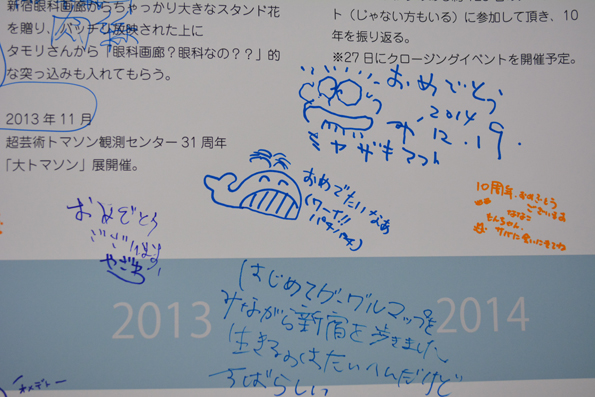 新宿眼科画廊からちゃっかり大きなスタンド花
を贈り、バッチリ放映された上に
タモリさんから「眼科画廊？眼科なの？？」的
な突っ込みも入れてもらう。
2013年11月
超芸術トマソン観測センター31周年
「大トマソン」展開催。
ト（じゃない方もいる）に参加して頂き、10
年を振り返る。
※27日にクロージングイベントを開催予定。
おめでとう
2014
12.19.
ミヤザキマコト
おめでたいなあ
(ワーイ!!
パチパチ)
おめでとう
ございます
10周年、おめでとう
ございます
ななこ
もんちゃん。
2013
2014
はじめてグーグルマップを
みながら新宿を歩きました
生きるのはたいへんだけど
すばらしい
オメデトー